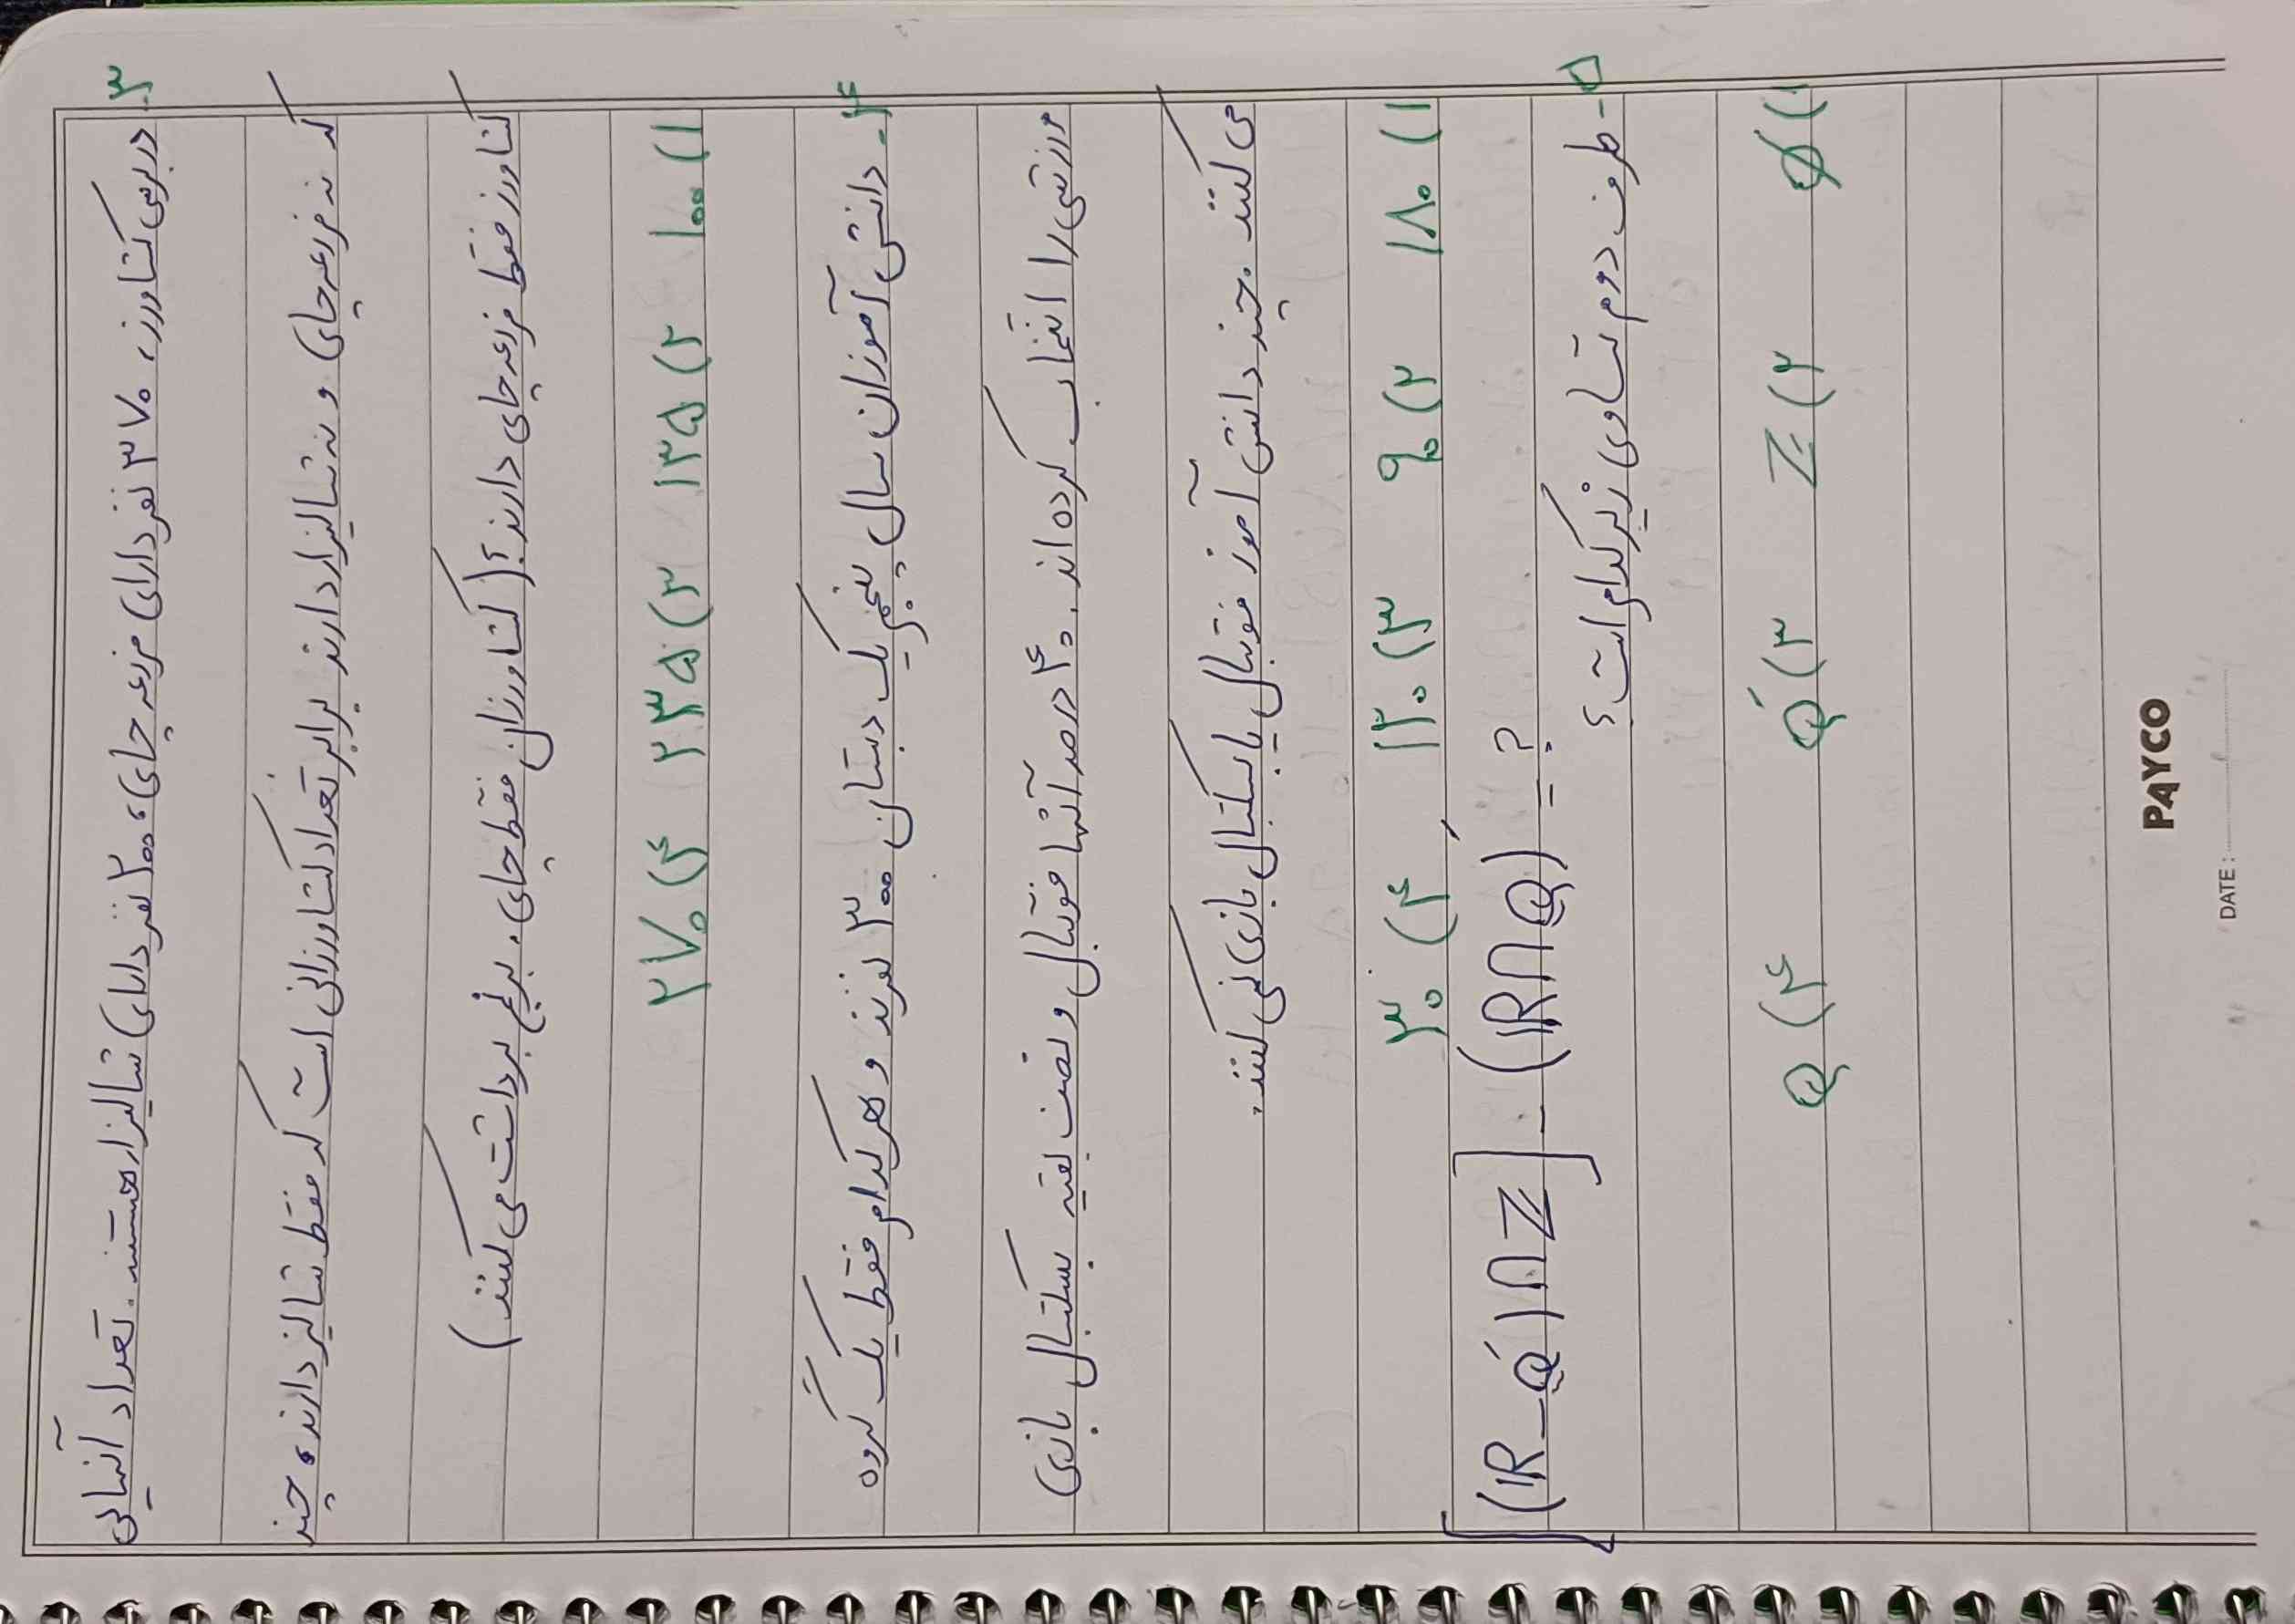 ۳- در بررسی کشاورز، ۳۷۰ نفر دارای مزرعه چای، ۲۰۰ نفر دارای شالیزار هستند. تعداد آنهایی
که نه مزرعه چای و نه شالیزار دارند برابر تعداد کشاورزانی است که فقط شالیزار دارند، چند
کشاورز فقط مزرعه چای دارند؟ (کشاورزان فقط چای، برنج برداشت می کنند)
۱) ۱۰۰ ۲) ۱۳۵ ۳) ۲۳۵ ۴) ۲۷۰
۴- دانش آموزان سال پنجم یک دبستان ۳۰۰ نفرند و هر کدام فقط یک گروه
ورزشی را انتخاب کرده اند. ۴۰ درصد آنها فوتبال و نصف بقیه بسکتبال بازی
می کنند. چند دانش آموز فوتبال یا بسکتبال بازی نمی کنند.
۱) ۱۸۰ ۲) ۹۰ ۳) ۱۲۰ ۴) ۳۰
۵- طرف دوم تساوی زیر کدام است؟
[(ℝ-Q́)∩ℤ]-(ℝ∩Q)=?
۱) ∅ ۲) ℤ ۳) Q́ ۴) Q
PAYCO
DATE: